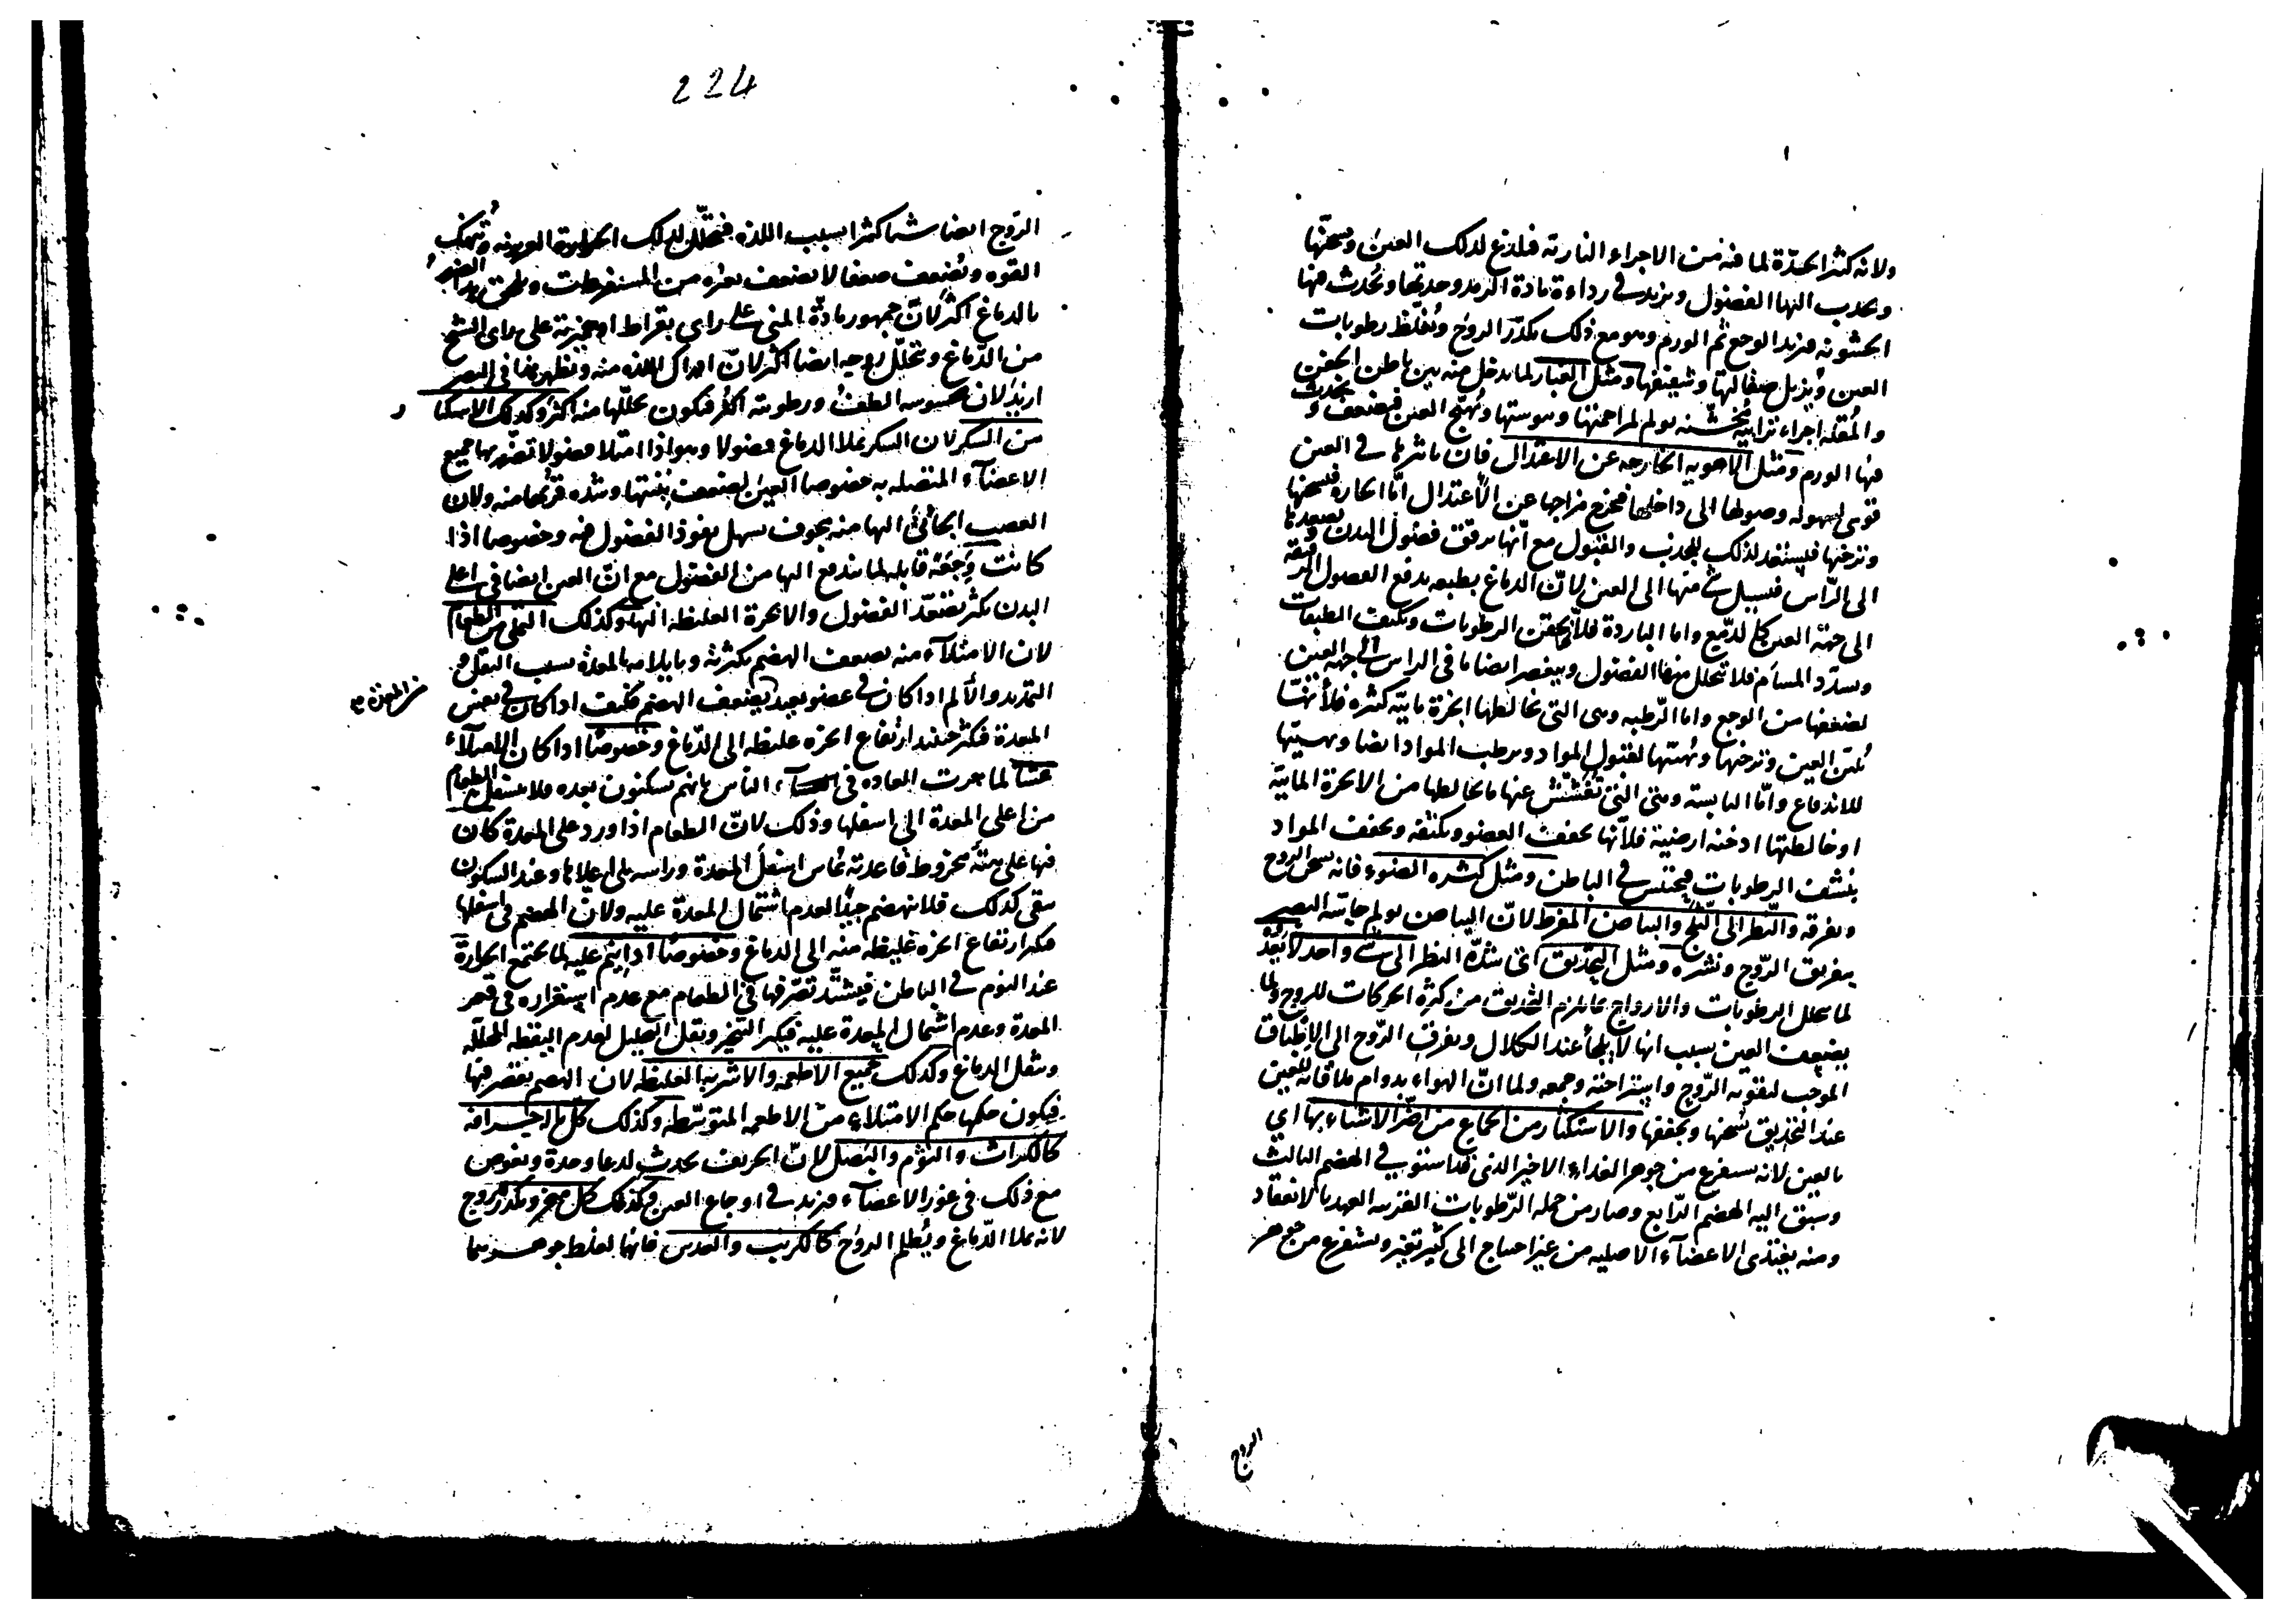 ولانه كثير الحدة لما فيه من الاجزاء النارية فيلذع لذلك العين ويسخنها
ويجذب اليها الفضول ويزيد في رداءة مادة الرمد وحدتها ويحدث فيها
الخشونة فيزيد الوجع ثم الورم وهو مع ذلك يكدر الروح ويغلظ رطوبات
العين ويزيل صقالتها وشفيفها ومثل الغبار لما يدخل منه بين باطن الجفن
والمقلة اجزاء ترابية مخشنة يولم لمزاحمتها ويبوستها ويهيج العين فيضعف ويحدث
فيها الورم ومثل الاهوية الخارجه عن الاعتدال فان تاثيرها في العين
قوى لسهوله وصولها الى داخلها فيخرج مزاجها عن الاعتدال اما الحارة فيسخنها
وترخيها فيستعد لذلك للجذب والقبول مع انها ترقق فضول البدن وتصعدها
الى الراس فيسيل شئ منها الى العين لان الدماغ بطبعه يدفع الفضول الرقيقة
الى جهة العين كالدمع واما الباردة فلانها يحقن الرطوبات ويكثف الطبقات
ويسدد المسام فلا تتحلل منها الفضول ويعصر ايضا ما في الراس الى جهة العين
لضعفها من الوجع واما الرطبه وهى التى تخالطها ابخرة مايية كثيره فلانها
تلين العين وترخيها وتهيئها لقبول المواد ويرطب المواد ايضا ويهيئها
للاندفاع واما اليابسة وهى التى تفشش عنها ما يخالطها من الابخرة المايية
او خالطتها ادخنه ارضية فلانها يجفف العضو ويكثفه ويجفف المواد
بنشف الرطوبات فيحتبس في الباطن ومثل كثره الضوء فانه يسخن الروح
ويفرقه والنظر الى الثلج والبياض المفرط لان البياض يولم حاسة البصر
بتفريق الروح ونشره ومثل التحديق اى شدة النظر الى شئ واحد لا يعدوه
لما يحلل الرطوبات والارواح بما يلزم التحديق من كثرة الحركات للروح ولما
يضعف العين بسبب انها لا يلجأ عند الكلال وتفرق الروح الى الاطباق
الموجب لتقويه الروح واستراحته وجمعه ولما ان الهواء بدوام ملاقاته للعين
عند التحديق يسخنها ويجففها والاستكثار من الجماع من اضر الاشياء بها اى
بالعين لانه يستفرغ من جوهر الغذاء الاخير الذى قد استوفي الهضم الثالث
وسبق اليه الهضم الرابع وصار من جمله الرطوبات القريبه العهد بالانعقاد
ومنه يغتذى الاعضآء الاصليه من غير احتياج الى كثير تغير ويستفرغ من جوهر
الروح
224
الروح ايضا شيا كثيرا بسبب اللذه فيتحلل لذلك الحرارة الغريزيه وتنهك
القوه ويضعف ضعفا لا يضعف بغيره من المستفرغات ويلحق هذا الضرر
بالدماغ اكثر لان جمهور مادة المنى على راى بقراط او خميرته على راى الشيخ
من الدماغ وتحلل روحه ايضا اكثر لان ادراك اللذه منه ويظهر هذا في البصر
ازيد لان محسوسه الطف ورطوبته اكثر فيكون تحللها منه اكثر وكذلك الاستكثار
من السكر لان السكر يملا الدماغ فضولا وهو اذا امتلا فضولا تضرر بها جميع
الاعضآء المتصله به خصوصا العين لضعف بنيتها وشده قربها منه ولان
العصب الجائى اليها منه مجوف يسهل نفوذ الفضول فيه وخصوصا اذا
كانت وجعة قابله لما يندفع اليها من الفضول مع ان العين ايضا في اعلى
البدن يكثر تصعد الفضول والابخرة الغليظه اليها وكذلك التملى من الطعام
لان الامتلآء منه يضعف الهضم بكثرته وبايلامه المعدة بسبب الثقل و
التمديد والالم اذا كان في عضو بعيد يضعف الهضم فكيف اذا كان في نفس
المعدة
المعدة فيكثر حينئذ ارتفاع ابخره غليظه الى الدماغ وخصوصا اذا كان الامتلآء
عشآ لما جرت العاده في الناس بانهم يسكنون بعده فلا يتسفل الطعام
من اعلى المعدة الى اسفلها وذلك لان الطعام اذا ورد على المعدة كان
فيها على هيئة مخروط قاعدته تماس اسفل المعدة وراسه يلى اعلاها وعند السكون
يبقى كذلك فلا ينهضم جيدا لعدم اشتمال المعدة عليه ولان الهضم في اسفلها
فيكثر ارتفاع ابخره غليظه منه الى الدماغ وخصوصا اذا نيم عليه لما يجتمع الحرارة
عند النوم في الباطن فيشتد تصرفها في الطعام مع عدم استقراره في قعر
المعدة وعدم اشتمال المعدة عليه فيكثر التبخر ويقل التحليل لعدم اليقظه المحلله
ويثقل الدماغ وكذلك جميع الاطعمه والاشربه الغليظه لان الهضم يقصر فيها
فيكون حكمها حكم الامتلاء من الاطعمه المتوسطه وكذلك كل ما له حرافه
كالكراث والثوم والبصل لان الحريف يحدث لذعا وحدة ويغوص
مع ذلك في غور الاعضآء فيزيد في اوجاع العين وكذلك كل مبخر ومكدر للروح
لانه يملا الدماغ ويظلم الروح كالكرنب والعدس فانها لغلظ جوهرهما